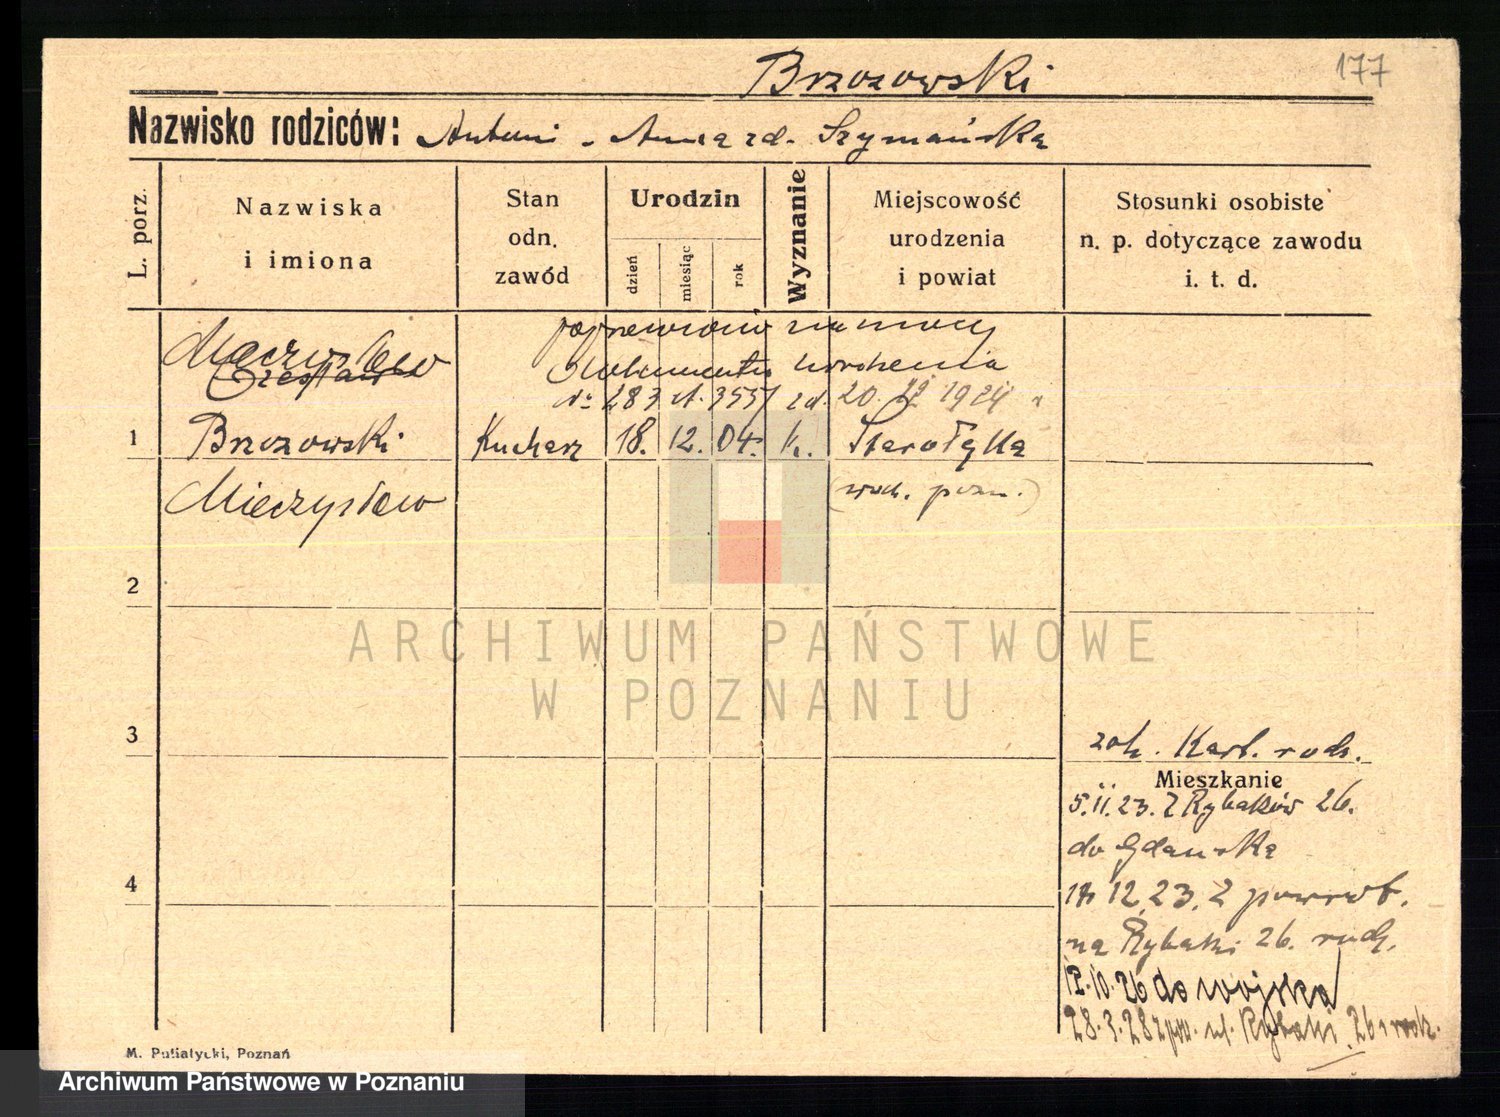 177
Brzozowski
Nazwisko rodziców: Antoni - Anna zd. Szymańska
L. porz.
Nazwiska
i imiona
Stan
odn.
zawód
Urodzin
dzień
miesiąc
rok
Wyznanie
Miejscowość
urodzenia
i powiat
Stosunki osobiste
n. p. dotyczące zawodu
i. t. d.
Mieczysław
Czesław
na mocy
dokumentu urodzenia
283 3557 zd. 20. 12 1924 r
1 Brzozowski Kucharz 18. 12. 04. k. Starołęka
Mieczysław (woch. pozn.)
2
ARCHIWUM PAŃSTWOWE
W POZNANIU
3
zob. Kart. rodz.
Mieszkanie
5.11.23. Z Rybaków 26.
do Gdańska
4
12.23. Z powrot.
na Rybaki 26. rodz.
12.10.26 do wojska
28.3.28 z pow. ul. Rybaki 26 rodz.
M. Putiatycki, Poznań
Archiwum Państwowe w Poznaniu